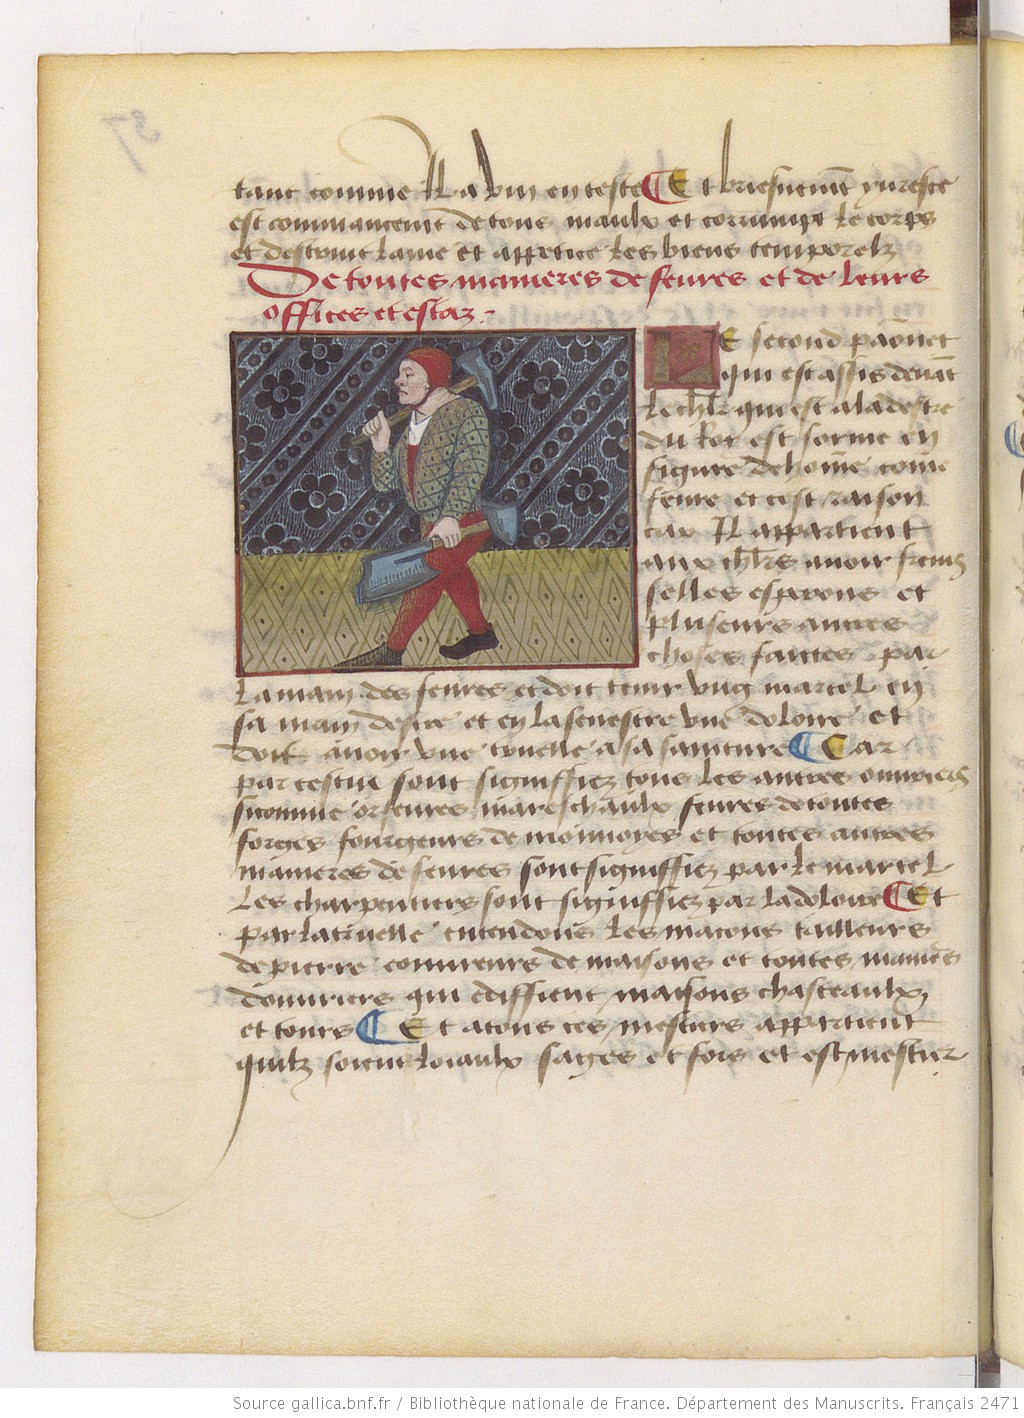 tant comme Il a vin en teste Et briefuemt yuresce
est commancemt de tous maulx et corrumpt le corps
et destruit lame et appetice les biens temporelz
De toutes manieres de feures et de leurs
offices et estaz
LE second paonnet
qui est assis deuāt
le chlr qui est a la destre
du Roy est forme en
figure de hōme cōme
feure et cest raison
car Il appartient
aux chlrs auoir freins
selles esperons et
plusieurs autres
choses faictes par
la main des feures et doit tenir vng martel en
sa main destre et en la senestre vne doloire et
doit auoir vne truelle a sa sainture Car
par cestui sont signiffiez tous les autres ouuriers
sicomme orfeures mareschaulx feures de toutes
forges fourgeurs de monnoyes et toutes autres
manieres de feures sont signiffiez par le martel
Les charpentiers sont signiffiez par la doloire Et
par la truelle entendons les macons tailleurs
de pierre couureurs de maisons et toutes manieres
douuriers qui ediffient maisons chasteaulx
et tours Et a tous ces mestiers appartient
quilz soient loiaulx sages et fors et est mestier
Source gallica.bnf.fr / Bibliothèque nationale de France. Département des Manuscrits. Français 2471